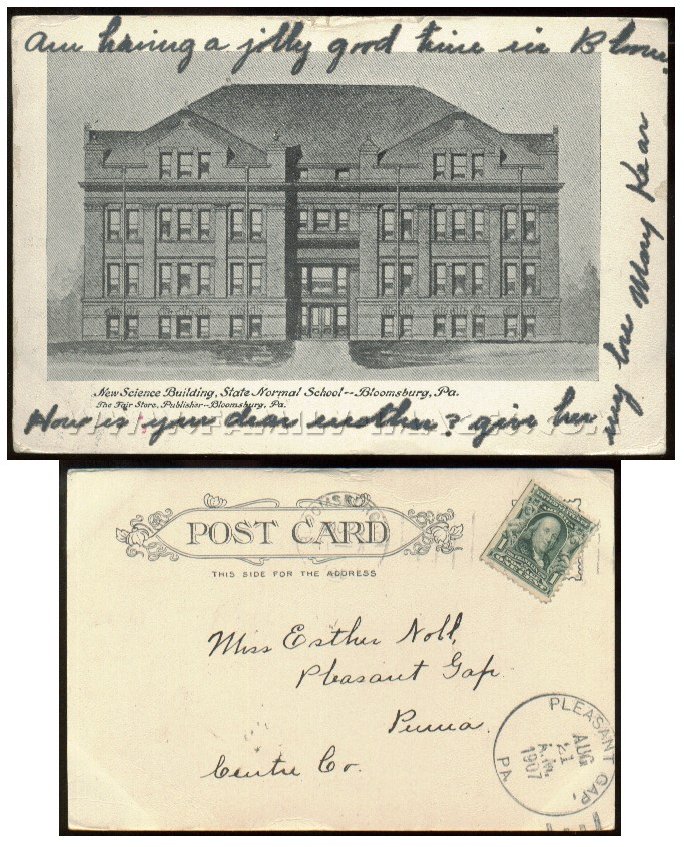 Am having a jolly good time in Bloom.
New Science Building, State Normal School--Bloomsburg, Pa.
The Fair Store, Publisher--Bloomsburg, Pa.
How is your dear mother? give her
my love Mary Kear
POST CARD
THIS SIDE FOR THE ADDRESS
Miss Esther Noll,
Pleasant Gap
Penna.
Centre Co.
PLEASANT GAP,
AUG
21
A.M.
1907
PA